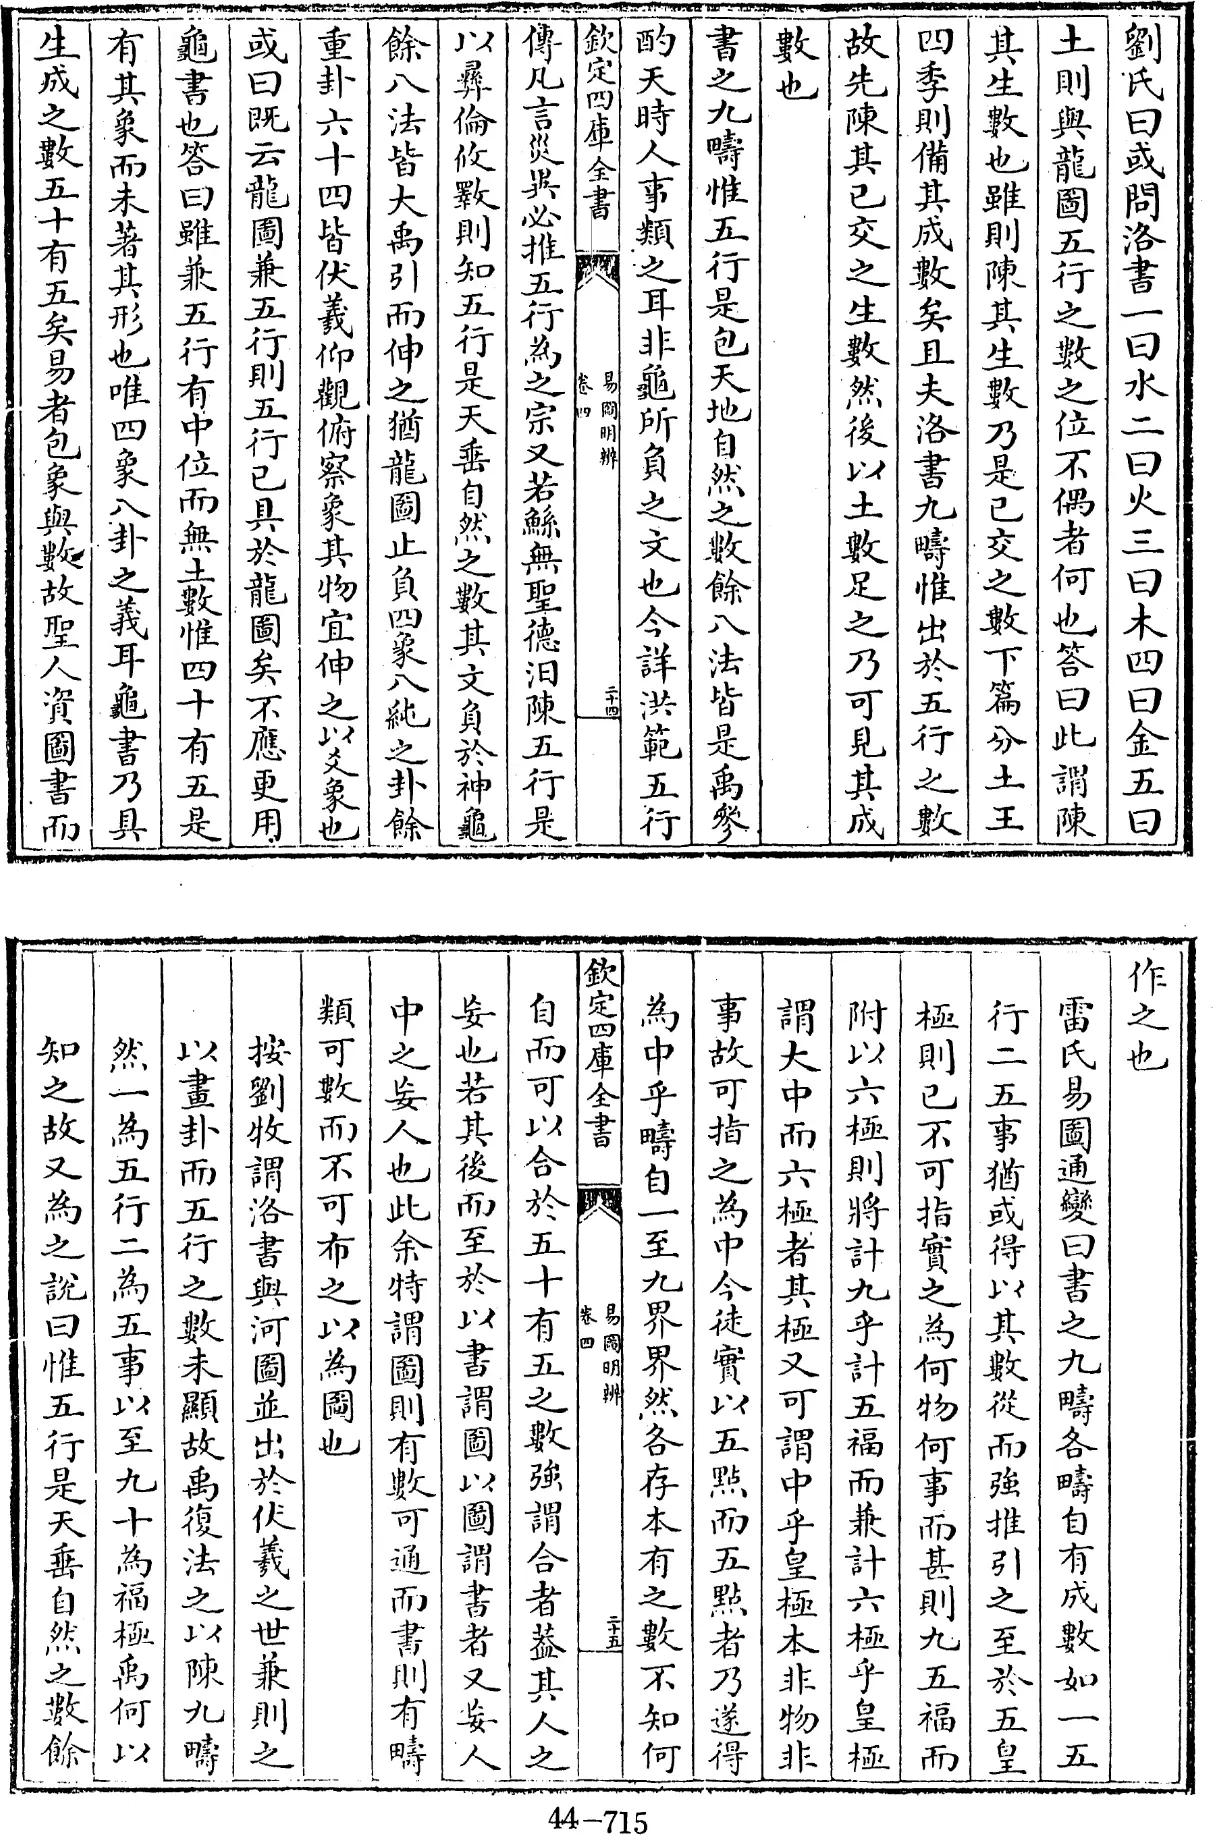 劉氏曰或問洛書一曰水二曰火三曰木四曰金五曰
土則與龍圖五行之數之位不偶者何也答曰此謂陳
其生數也雖則陳其生數乃是已交之數下篇分土王
四季則備其成數矣且夫洛書九疇惟出於五行之數
故先陳其已交之生數然後以土數足之乃可見其成
數也
書之九疇惟五行是包天地自然之數餘八法皆是禹參
酌天時人事類之耳非龜所負之文也今詳洪範五行
欽定四庫全書
易圖明辨
卷四
二十四
傳凡言災異必推五行為之宗又若鯀無聖德汩陳五行是
以彞倫攸斁則知五行是天垂自然之數其文負於神龜
餘八法皆大禹引而伸之猶龍圖止負四象八純之卦餘
重卦六十四皆伏羲仰觀俯察象其物宜伸之以爻象也
或曰既云龍圖兼五行則五行已具於龍圖矣不應更用
龜書也答曰雖兼五行有中位而無土數惟四十有五是
有其象而未著其形也唯四象八卦之義耳龜書乃具
生成之數五十有五矣易者包象與數故聖人資圖書而
作之也
雷氏易圖通變曰書之九疇各疇自有成數如一五
行二五事猶或得以其數從而強推引之至於五皇
極則已不可指實之為何物何事而甚則九五福而
附以六極則將計九乎計五福而兼計六極乎皇極
謂大中而六極者其極又可謂中乎皇極本非物非
事故可指之為中今徒實以五點而五點者乃遂得
為中乎疇自一至九界界然各存本有之數不知何
欽定四庫全書
易圖明辨
卷四
二十五
自而可以合於五十有五之數強謂合者葢其人之
妄也若其後而至於以書謂圖以圖謂書者又妄人
中之妄人也此余特謂圖則有數可通而書則有疇
類可數而不可布之以為圖也
按劉牧謂洛書與河圖並出於伏羲之世兼則之
以畫卦而五行之數未顯故禹復法之以陳九疇
然一為五行二為五事以至九十為福極禹何以
知之故又為之說曰惟五行是天垂自然之數餘
44-715